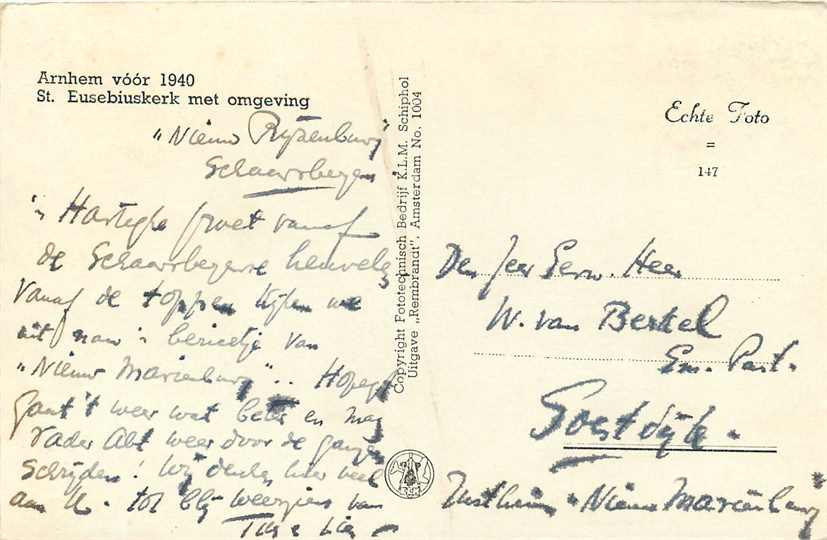 Arnhem vóór 1940
St. Eusebiuskerk met omgeving
"Nieuw Rijsenburg"
Schaarsbergen
'n Hartelyke groet vanaf
de Schaarsbergense heuvelen
Vanaf de toppen kijken we
uit naar 'n berichtje van
"Nieuw Mariënburg".. Hopelijk
gaat 't weer wat beter en mag
Vader Abt weer door de gangen
schrijden! Wij denken hier veel
aan U. tot blij weerzien van
Copyright Fototechnisch Bedrijf K.L.M. Schiphol
Uitgave „Rembrandt", Amsterdam No. 1004
Echte Foto
=
147
Den Zeer Eerw. Heer
W. van Berkel
Em. Past.
Soestdijk.
Rusthuis "Nieuw Mariënburg"